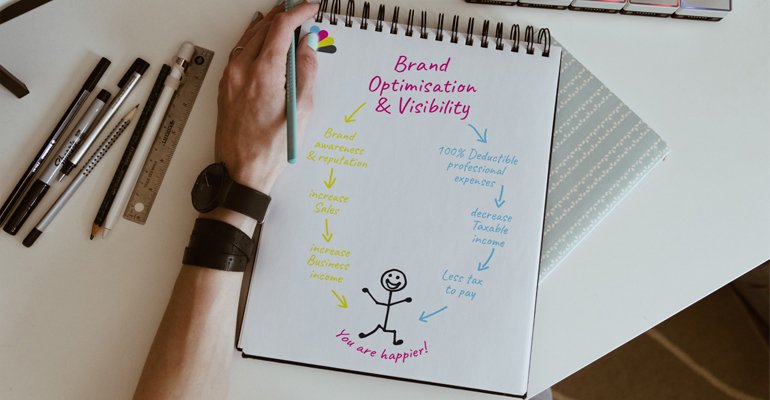 Brand
Optimisation
& Visibility
Brand
awareness
& reputation
increase
Sales
increase
Business
income
100% Deductible
professional
expenses
decrease
Taxable
income
Less tax
to pay
You are happier!